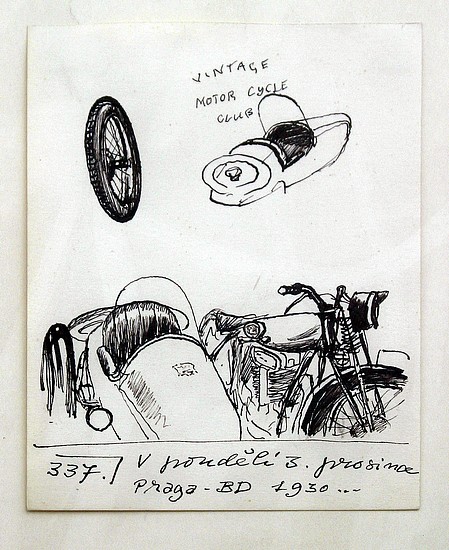 VINTAGE
MOTOR CYCLE
CLUB
337./ V pondělí 3. prosince
Praga-BD 1930...